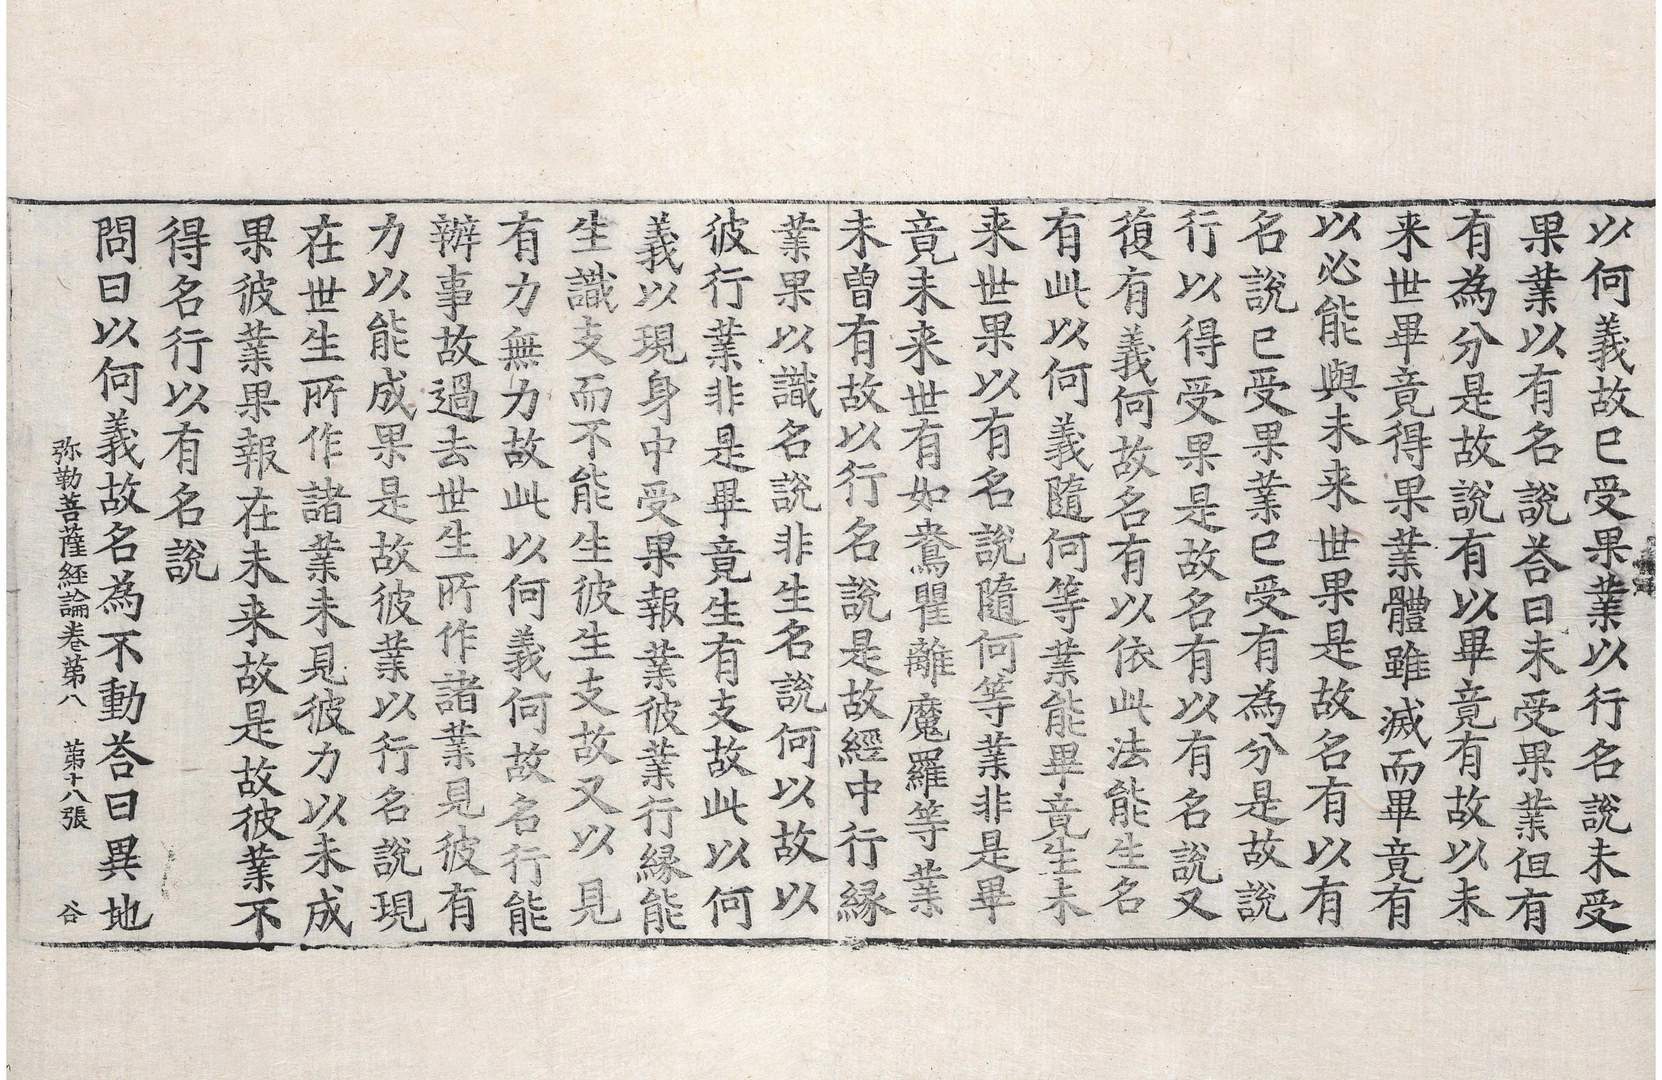 以何義故已受果業以行名說未受
果業以有名說荅曰未受果業但有
有為分是故說有以畢竟有故以未
来世畢竟得果業體雖滅而畢竟有
以必能與未来世果是故名有以有
名說已受果業已受有為分是故說
行以得受果是故名有以有名說又
復有義何故名有以依此法能生名
有此以何義隨何等業能畢竟生未
来世果以有名說隨何等業非是畢
竟未来世有如鴦瞿離魔羅等業
未曾有故以行名說是故經中行縁
業果以識名說非生名說何以故以
彼行業非是畢竟生有支故此以何
義以現身中受果報業彼業行縁能
生識支而不能生彼生支故又以見
有力無力故此以何義何故名行能
辦事故過去世生所作諸業見彼有
力以能成果是故彼業以行名說現
在世生所作諸業未見彼力以未成
果彼業果報在未来故是故彼業不
得名行以有名說
問曰以何義故名為不動荅曰異地
弥勒菩薩経論卷第八 第十八張 谷